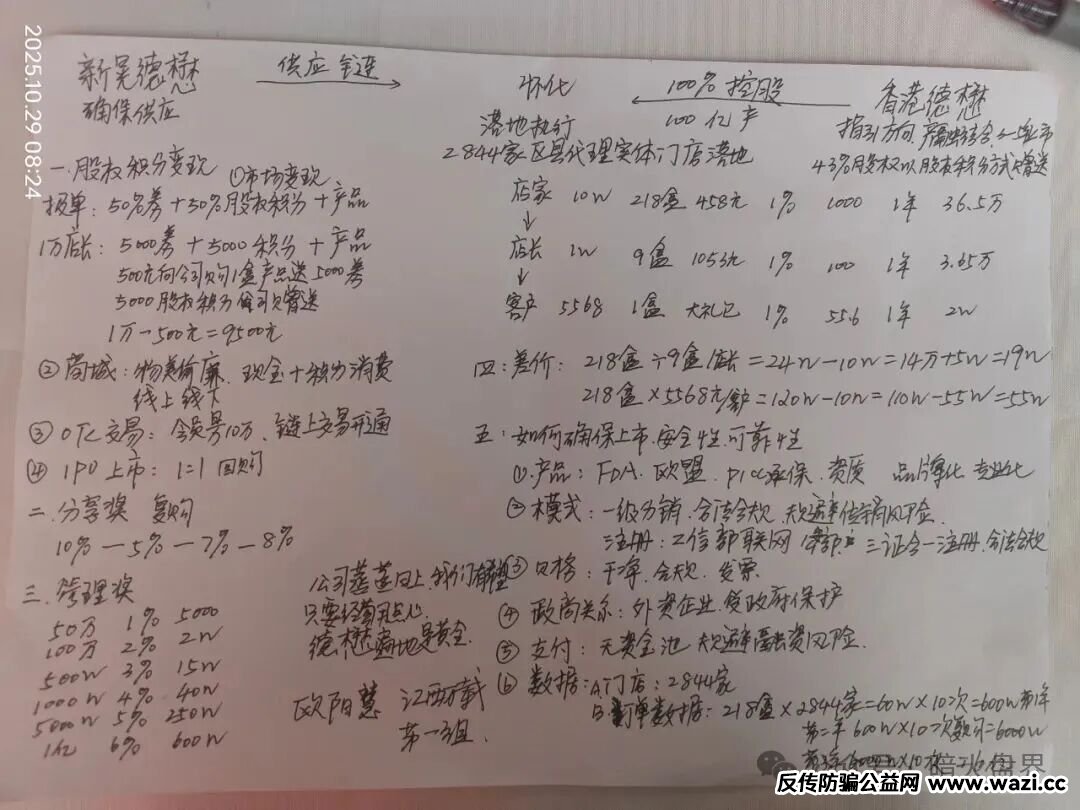 2025.10.29 08:24
新吴德懋
供应链
怀化
100%控股
香港德懋
确保供应
落地执行
100亿产
指引方向
2844家区县代理实体门店落地
43%股权以股权积分方式赠送
一.股权积分变现 ①市场变现
报单:50%券+50%股权积分+产品
1万店长:5000券+5000积分+产品
500元向公司购1盒产品送5000券
5000股权积分公司赠送
1万一500元=9500元
②商城:物美价廉、现金+积分消费
线上线下
③OTC交易:会员号10万、链上交易开通
④IPO上市:1=1回购
二.分享奖 复购
10%—5%—7%—8%
三.管理奖
50万 1% 5000
100万 2% 2w
500w 3% 15w
1000w 4% 40w
5000w 5% 250w
1亿 6% 600w
店家 10w 218盒 458元 1% 1000 1年 36.5万
↓
店长 1w 9盒 1053元 1% 100 1年 3.65万
↓
客户 5568 1盒 大礼包 1% 55.6 1年 2w
四:差价:218盒÷9盒/店长=24w-10w=14万+5w=19w
218盒×5568元/客户=120w-10w=110w-55w=55w
五:如何确保上市.安全性.可靠性
①产品:FDA.欧盟.PICC承保.资质 品牌化 专业化
②模式:一级分销.合法合规.规避传销风险.
注册:工信部联网 三证合一注册.合法合规
③价格:干净.合规.发票
④政商关系:外资企业.受政府保护
⑤支付:无资金池 规避融资风险.
⑥数据:A门店:2844家
B订单数据:218盒×2844家=60w×10次=600w第1年
第二年600w×10次复购=6000w
公司蒸蒸日上,我们有希望
只要经营用点心
德懋遍地是黄金.
欧阳慧 江西戴
第一组.
反传防骗公益网 www.wazi.cc